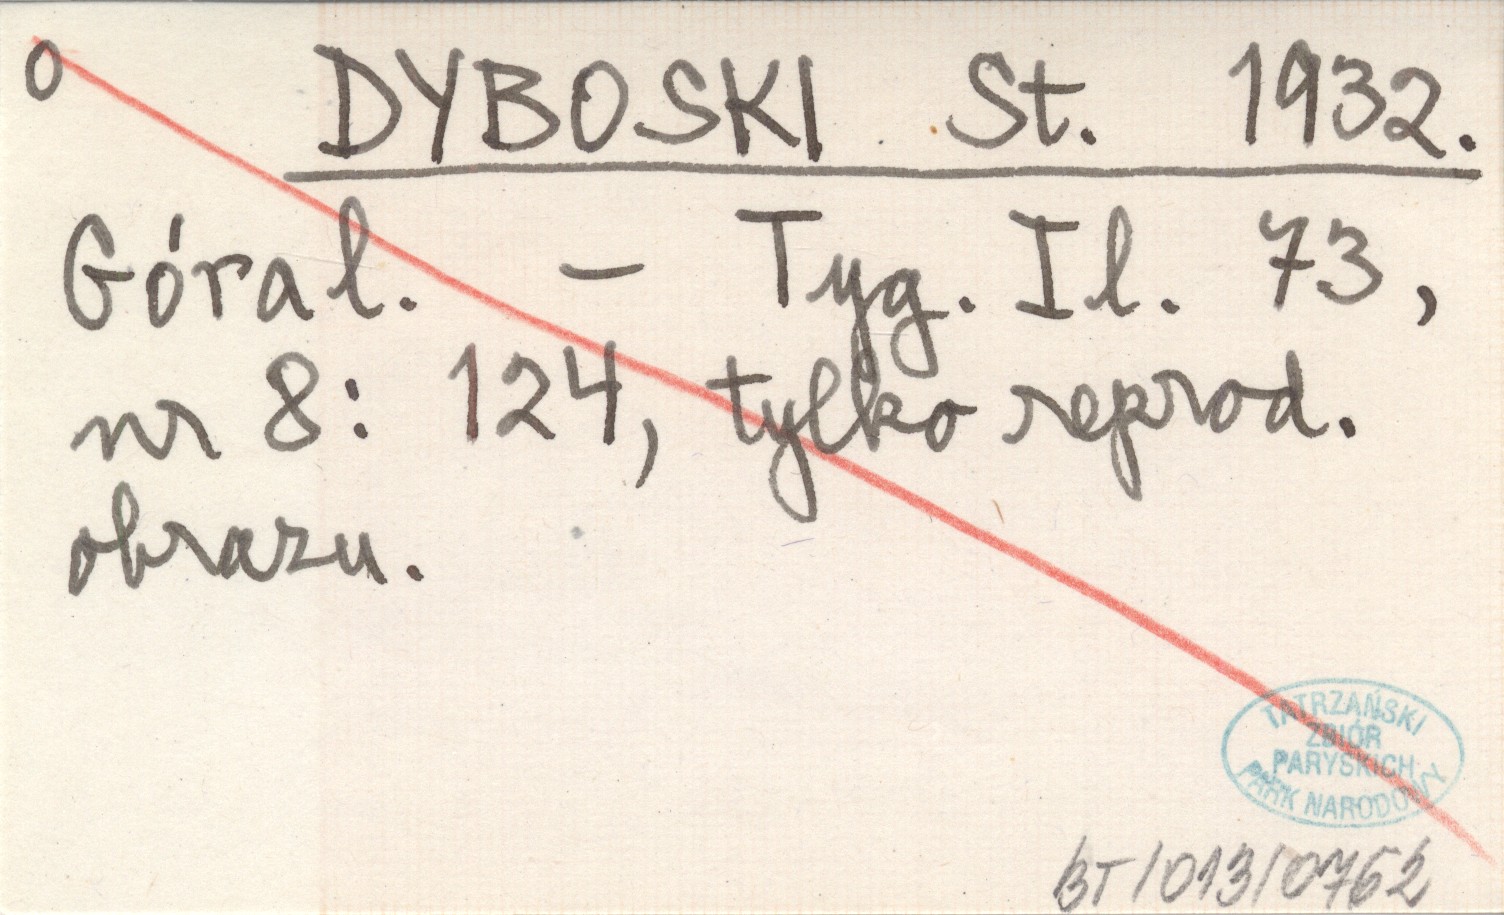 O DYBOSKI St. 1932.
Góral. – Tyg. Il. 73,
nr 8: 124, tylko reprod.
obrazu.
TATRZAŃSKI
ZBIÓR
PARYSKICH
PARK NARODOWY
BT/013/0762